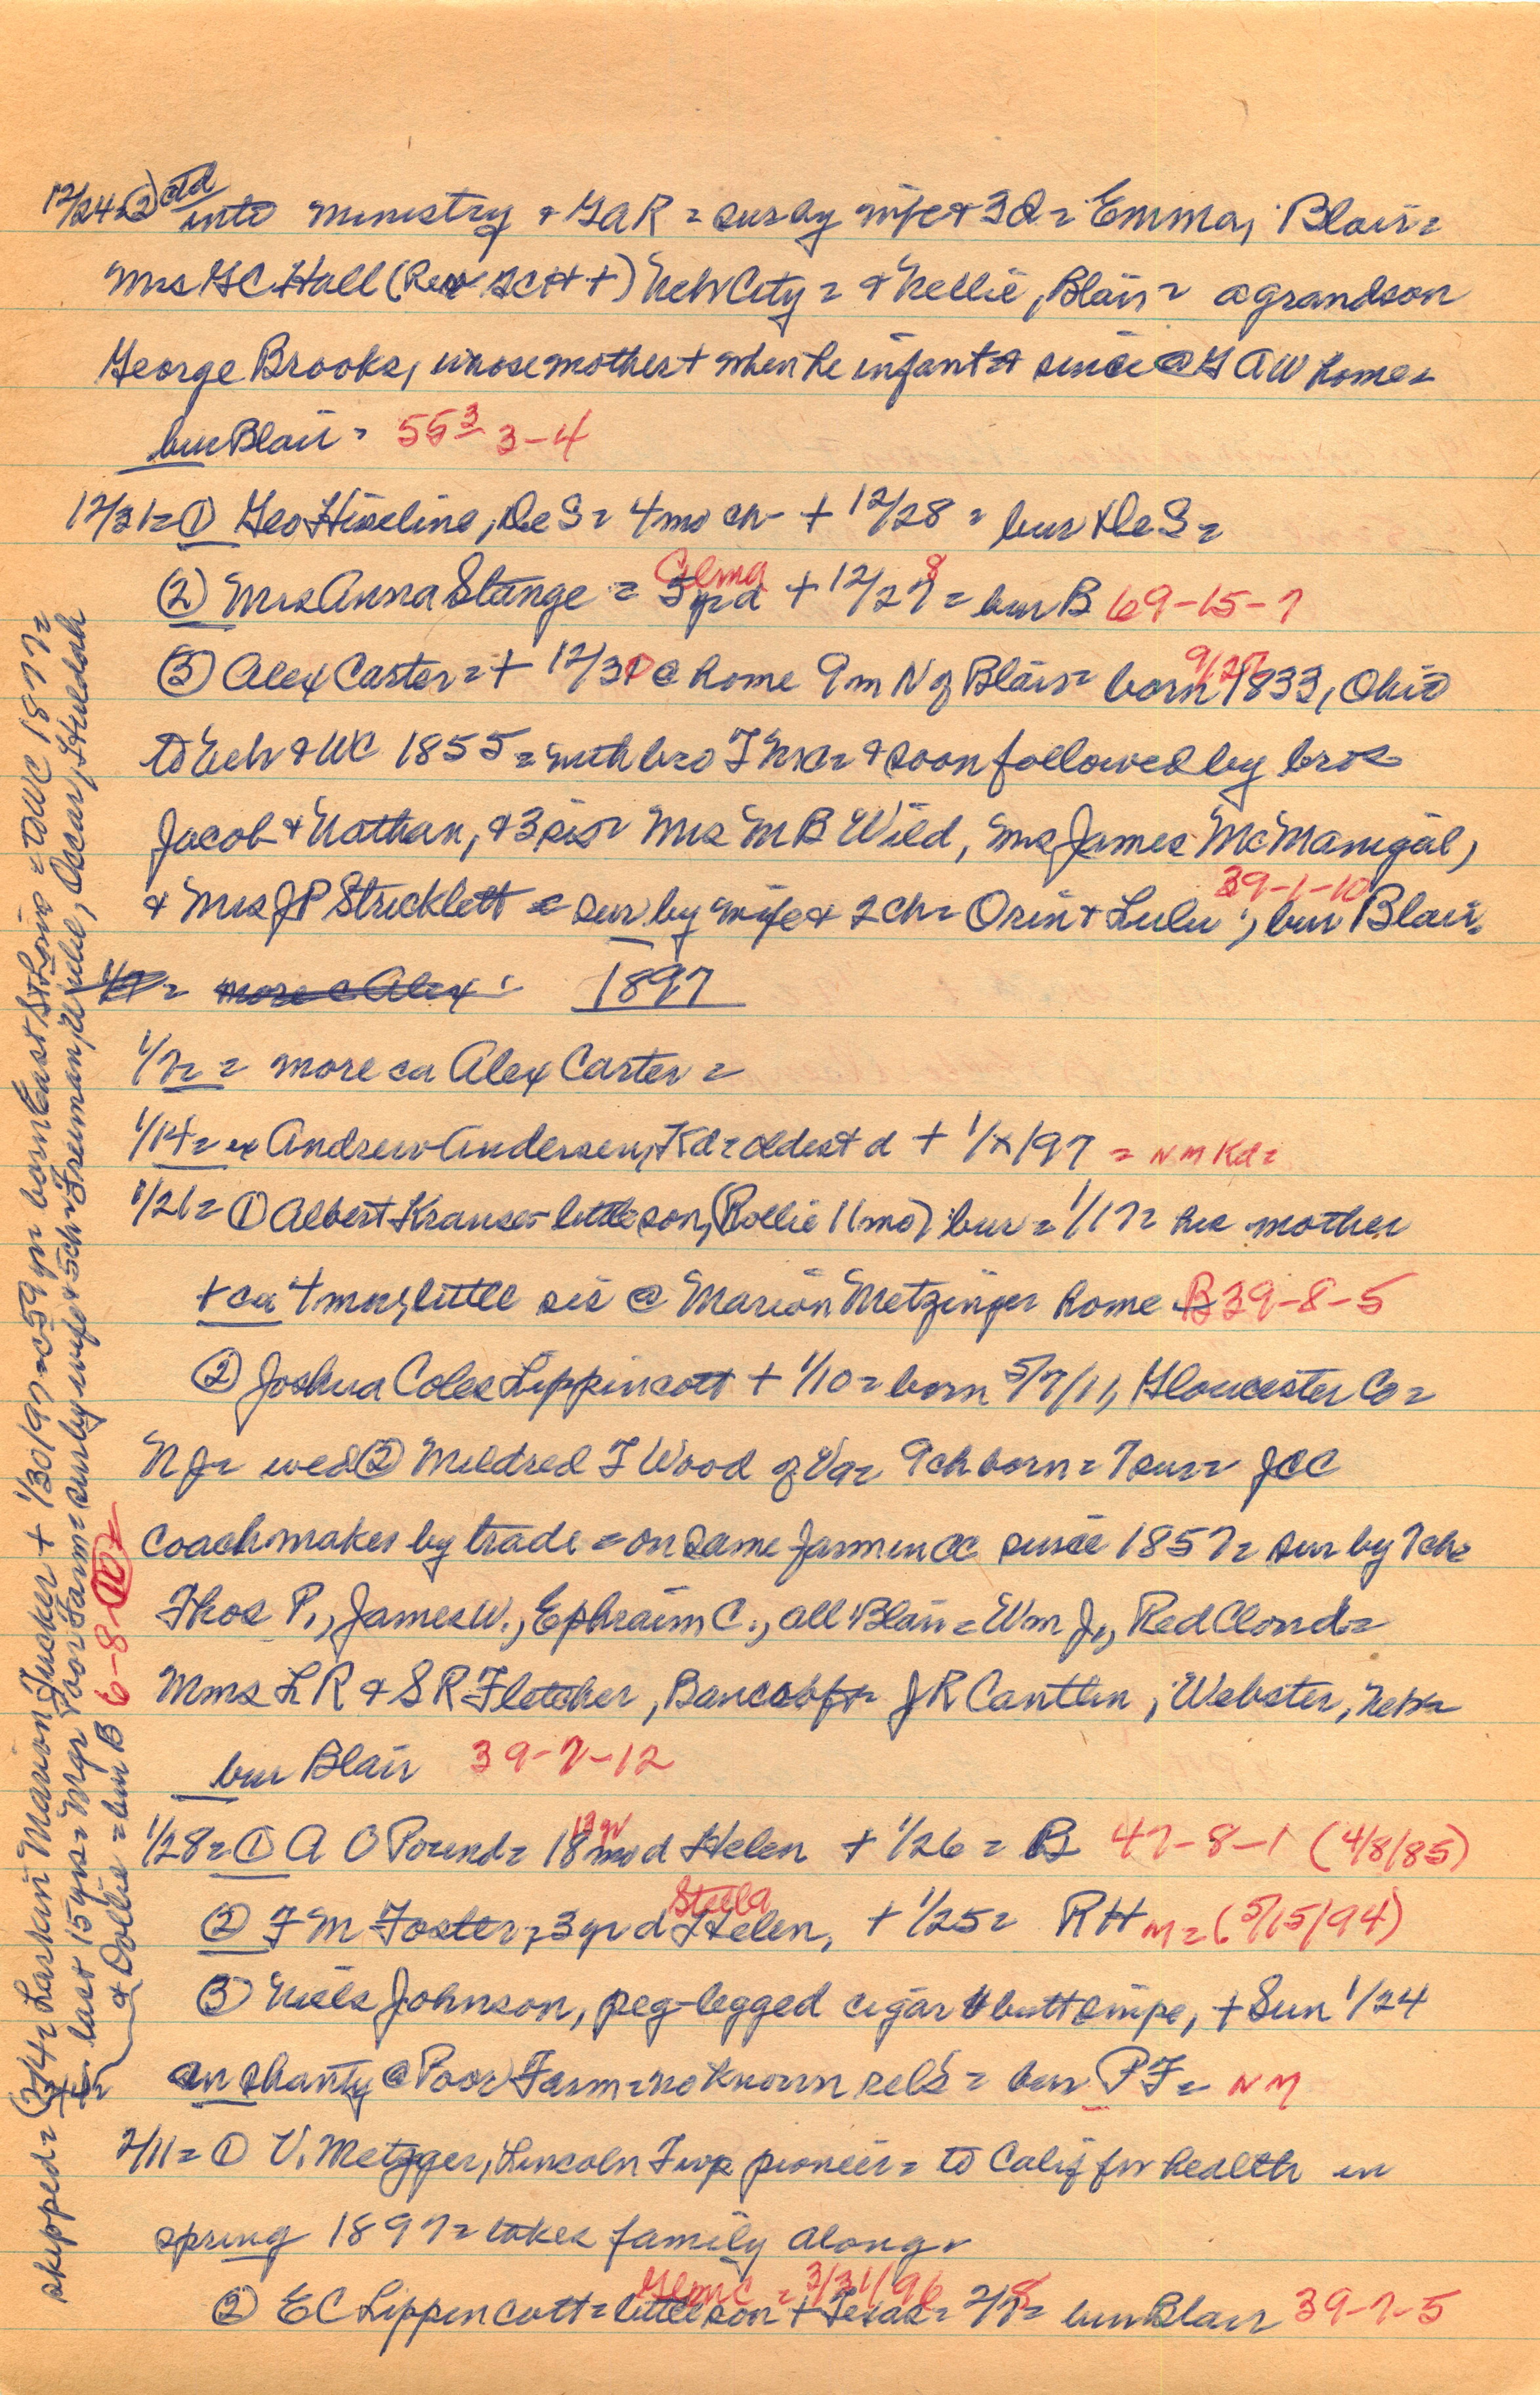 12/24=② ctd into ministry & GAR = sur by wife & 3 d = Emma, Blair =
Mrs GC Hall (Rev GCH +) Neb City = & Nellie, Blair = a grandson
George Brooks, whose mother + when he infant & since @ GAW home =
bur Blair = 55 3 3-4
12/31= ① Geo Hineline, De S = 4 mo ch + 12/28 = bur De S =
② Mrs Anna Stange = 5 yr d + 12/27 8 = bur B 69-15-7
③ Alex Carter = + 12/30 @ home 9 m N of Blair = born 9/27 1833, Ohio
to Neb & WC 1855 = with bro & soon followed by bros
Jacob & Nathan, & 3 sis = Mrs M B Wild, Mrs James McManigal,
& Mrs JP Stricklett = sur by wife & 2 ch = Orin & Lulu, bur Blair = 39-1-10
1/7 = more c Alex : 1897
1/7 = = more ca Alex Carter =
1/14 = Andrew Andersen, Kd = oldest d + 1/x/97 = NM Kd =
1/21 = ① Albert Krause = little son, (Rollie 11 mo) bur = 1/17 = his mother
+ ca 4 mos, little sis @ Marion Metzinger home B 39-8-5
② Joshua Coles Lippincott + 1/10 = born 5/7/11, Gloucester Co =
NJ = wed ② Mildred T Wood of Va = 9 ch born = 7 sur =
coachmaker by trade = on same farm since 1857 = sur by 7 ch =
Thos P., James W., Ephraim C., all Blair = Wm J., Red Cloud =
Mms L R & S R Fletcher, Bancroft = J R Cantlin, Webster, Neb =
bur Blair 39-7-12
1/28 = ① A O Pound = 18 mo d Helen + 1/26 = B 47-8-1 (4/8/85)
② F M Foster, = 3 yr d Helen, Stella + 1/25 = RH M = (5/15/94)
③ Niels Johnson, peg-legged cigar butt snipe, + Sun 1/24
in shanty @ Poor Farm = no known rels = bur PF = NM
2/11 = ① V. Metzger, Lincoln Twp pioneer = to Calif for health in
spring 1897 = takes family along =
② EC Lippincott = little son + Texas = 2/7 8 = bur Blair 39-7-5
= 3/31/96
skipped = 2/4 = Larkin Marion Tucker + 1/30/97 = c 59 yr = born East St Louis = to WC 1877 =
= last 15 yrs = Mgr Poor Farm = sur by wife & 5 ch = Freeman, Oscar, Huldah
& Dollie = bur B 6-8-10 =